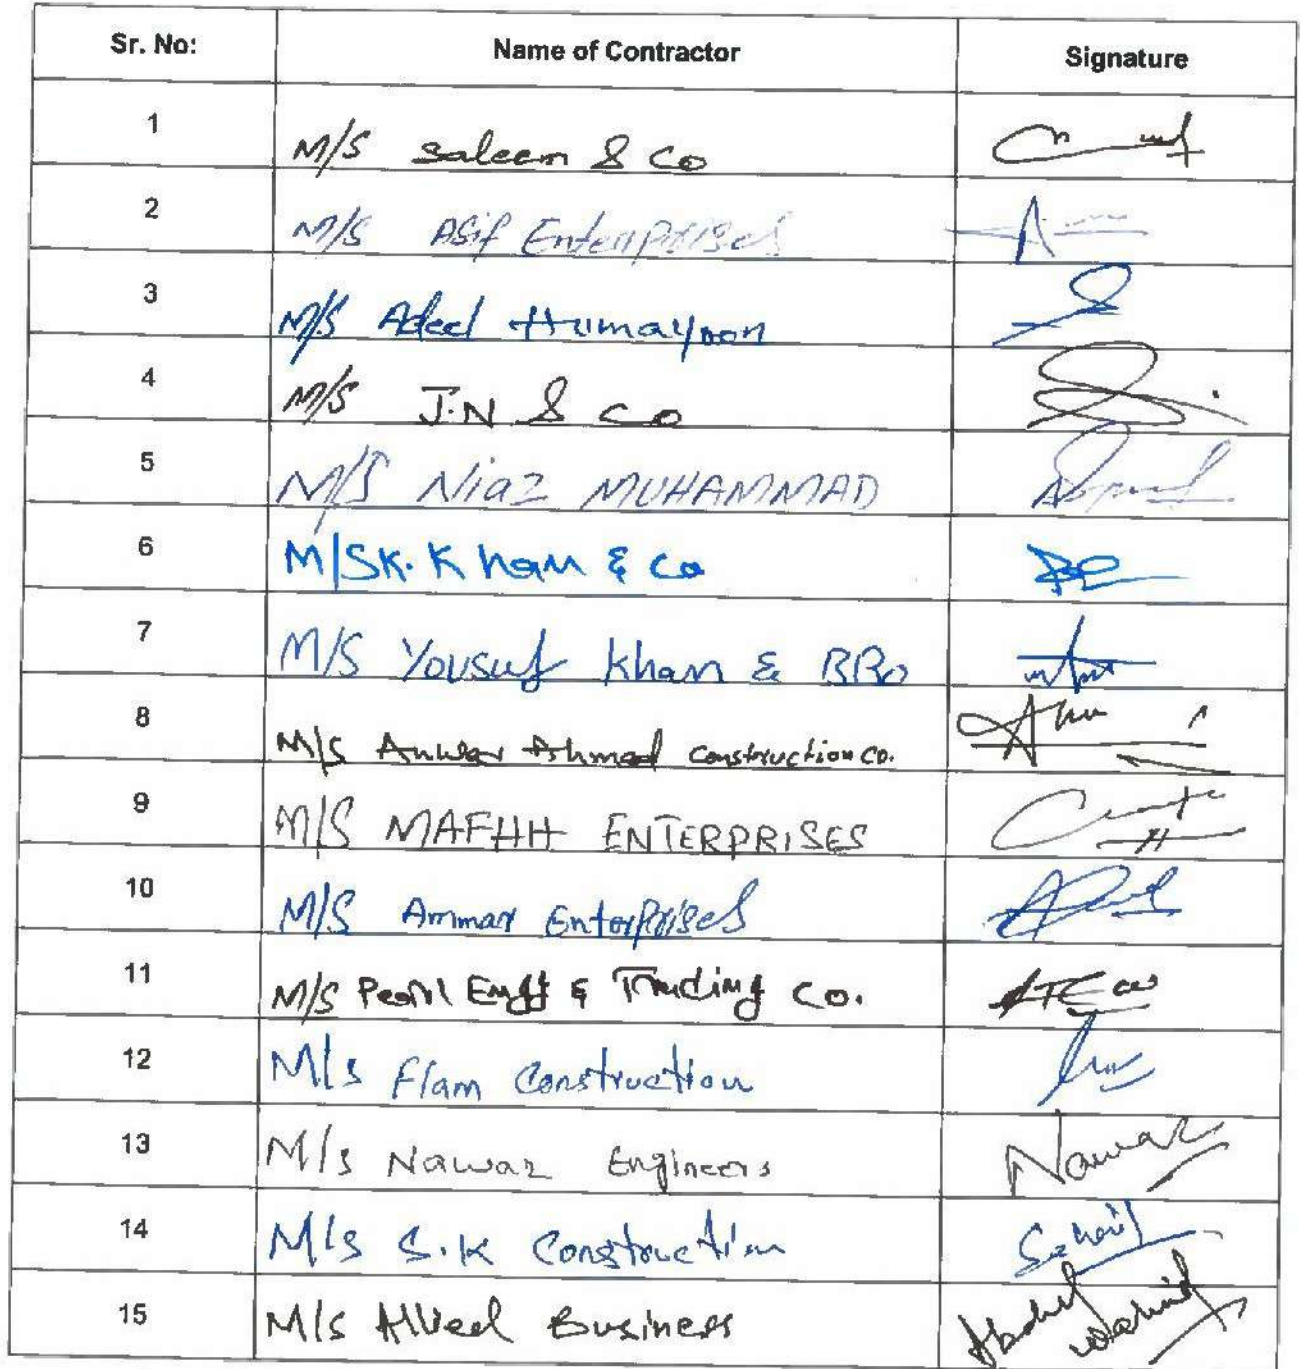 Sr. No: Name of Contractor Signature
1 M/S Saleem & Co
2 M/S Asif Enterprises
3 M/S Adeel Humayoon
4 M/S J.N & Co
5 M/S Niaz MUHAMMAD
6 M/S K. Khan & Co
7 M/S Yousuf Khan & BRo
8 M/S Anwar Ahmed Construction Co.
9 M/S MAFHH ENTERPRISES
10 M/S Ammar Enterprises
11 M/S Pearl Engg & Trading Co.
12 M/s Flam Construction
13 M/s Nawaz Engineers Nawaz
14 M/s S.K Construction
15 M/s Business Abdul Wahid